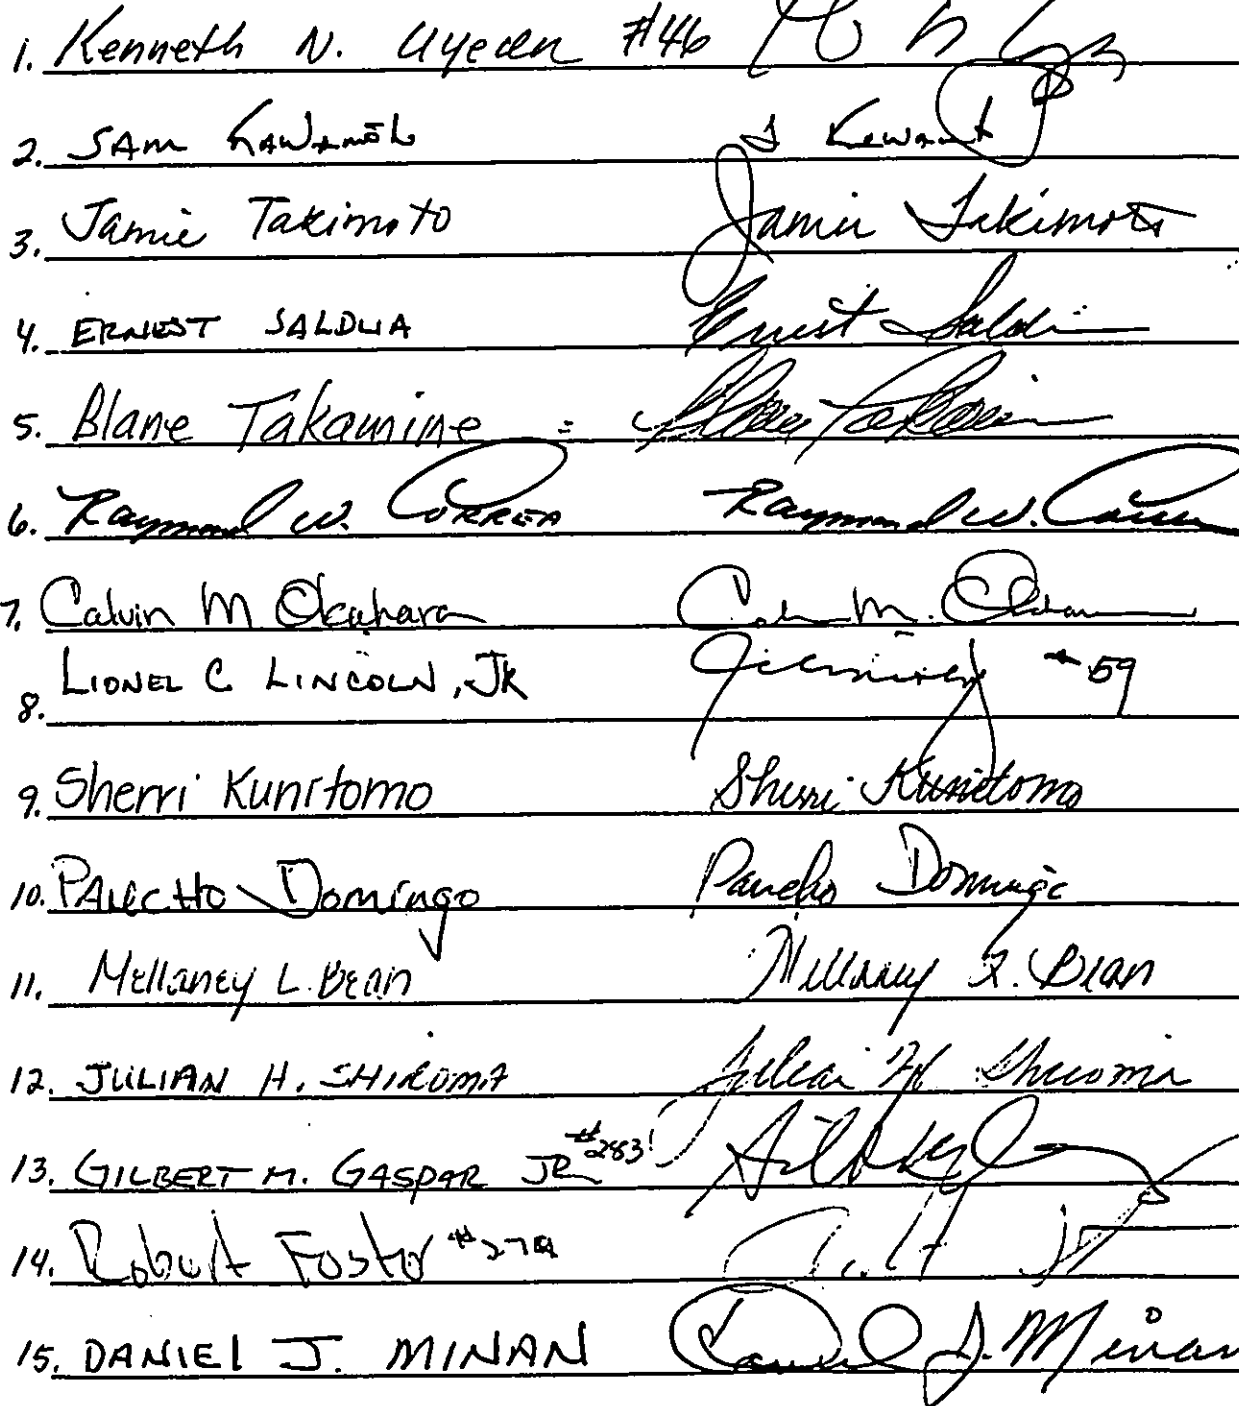 1. Kenneth N. Uyeda #46
2. SAM KAWAMOTO S Kawamoto
3. Jamie Takimoto Jamie Takimoto
4. ERNEST SALDUA Ernest Saldua
5. Blane Takamine :
6. Raymond W. CORREA Raymond W. Correa
7. Calvin M Okuhara Calvin M.
8. LIONEL C LINCOLN, JR #59
9. Sherri Kunitomo Sherri Kunitomo
10. PANCHO Domingo Pancho Domingo
11. Mellaney L. Bean Mellaney L. Bean
12. JULIAN H. SHIROMA Julian H Shiroma
13. GILBERT M. GASPAR JR #283
14. Robert Foster
15. DANIEL J. MINAN Daniel J. Minan